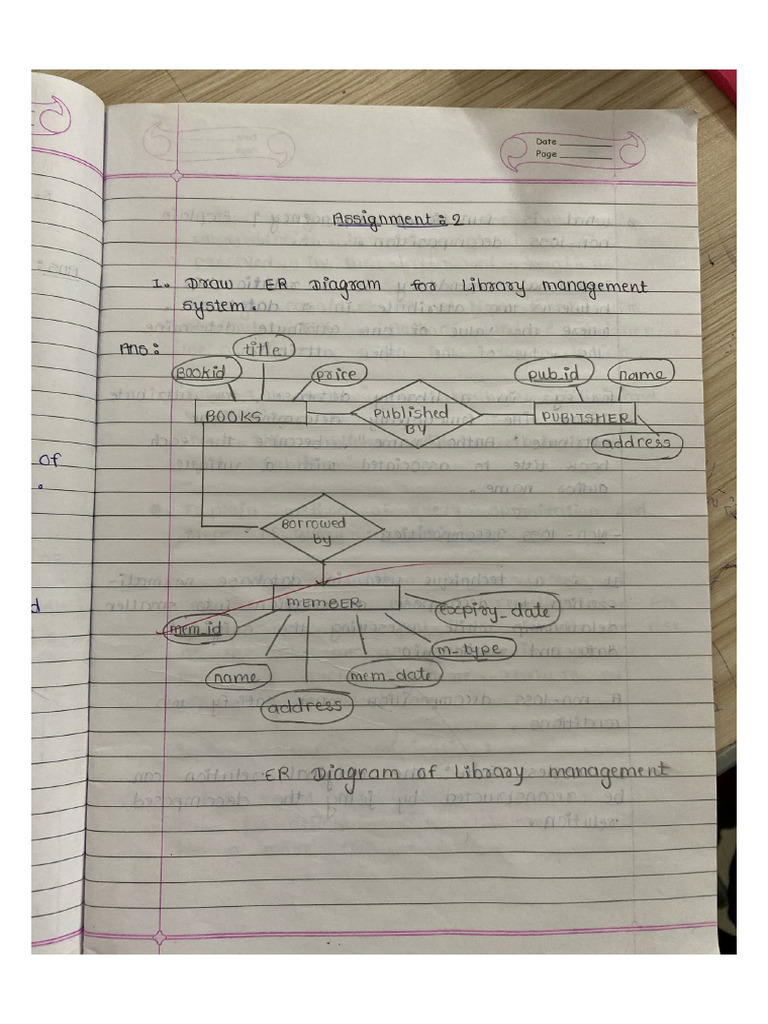 Date
Page
Assignment: 2
1. Draw ER Diagram for Library management
system.
Ans:
title
Bookid
price
pub_id
name
BOOKS
Published
BY
PUBLISHER
address
Of
Borrowed
by
d
MEMBER
expiry_date
mem_id
m_type
name
mem_date
address
ER Diagram of Library management